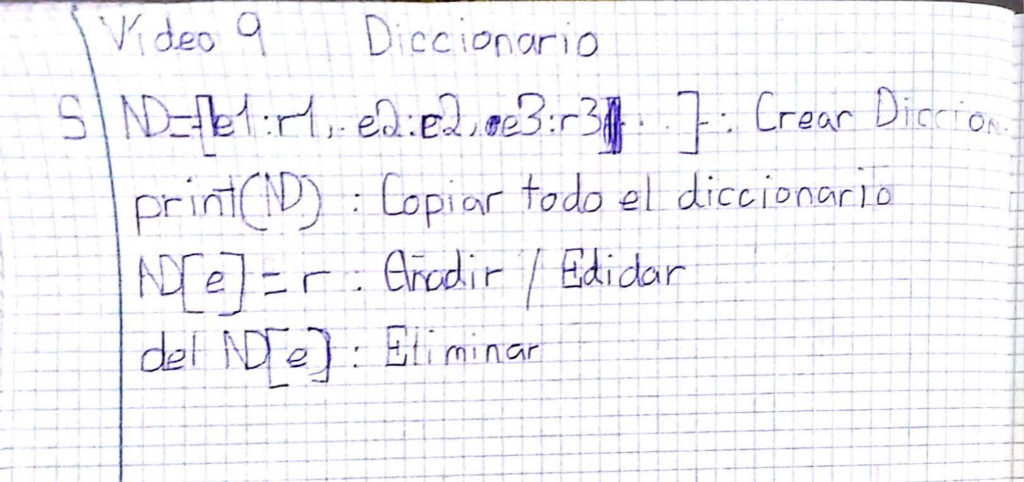 Vídeo 9 Diccionario
S ND={e1:r1, e2:e2, e3:r3...}: Crear Diccion.
print(ND) : Copiar todo el diccionario
ND[e]=r : Añadir / Edidar
del ND[e] : Eliminar